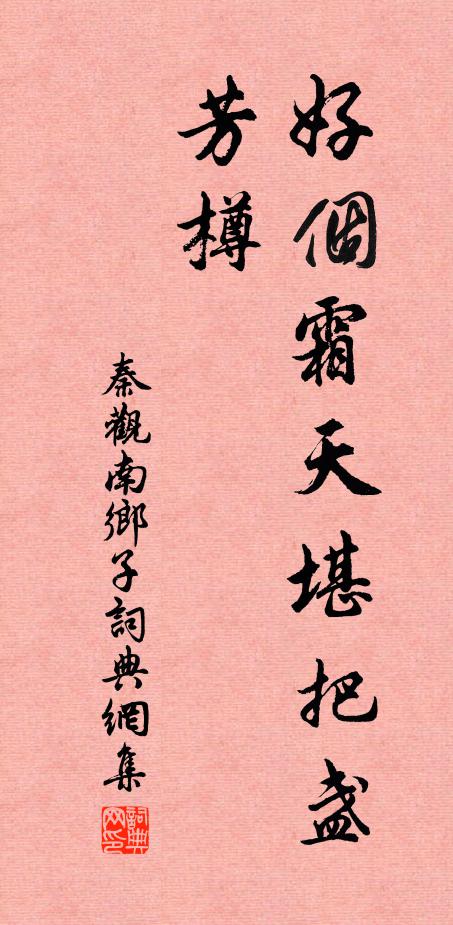 好個霜天堪把盞
芳樽
秦觀南鄉子詞典網集
詞典网印